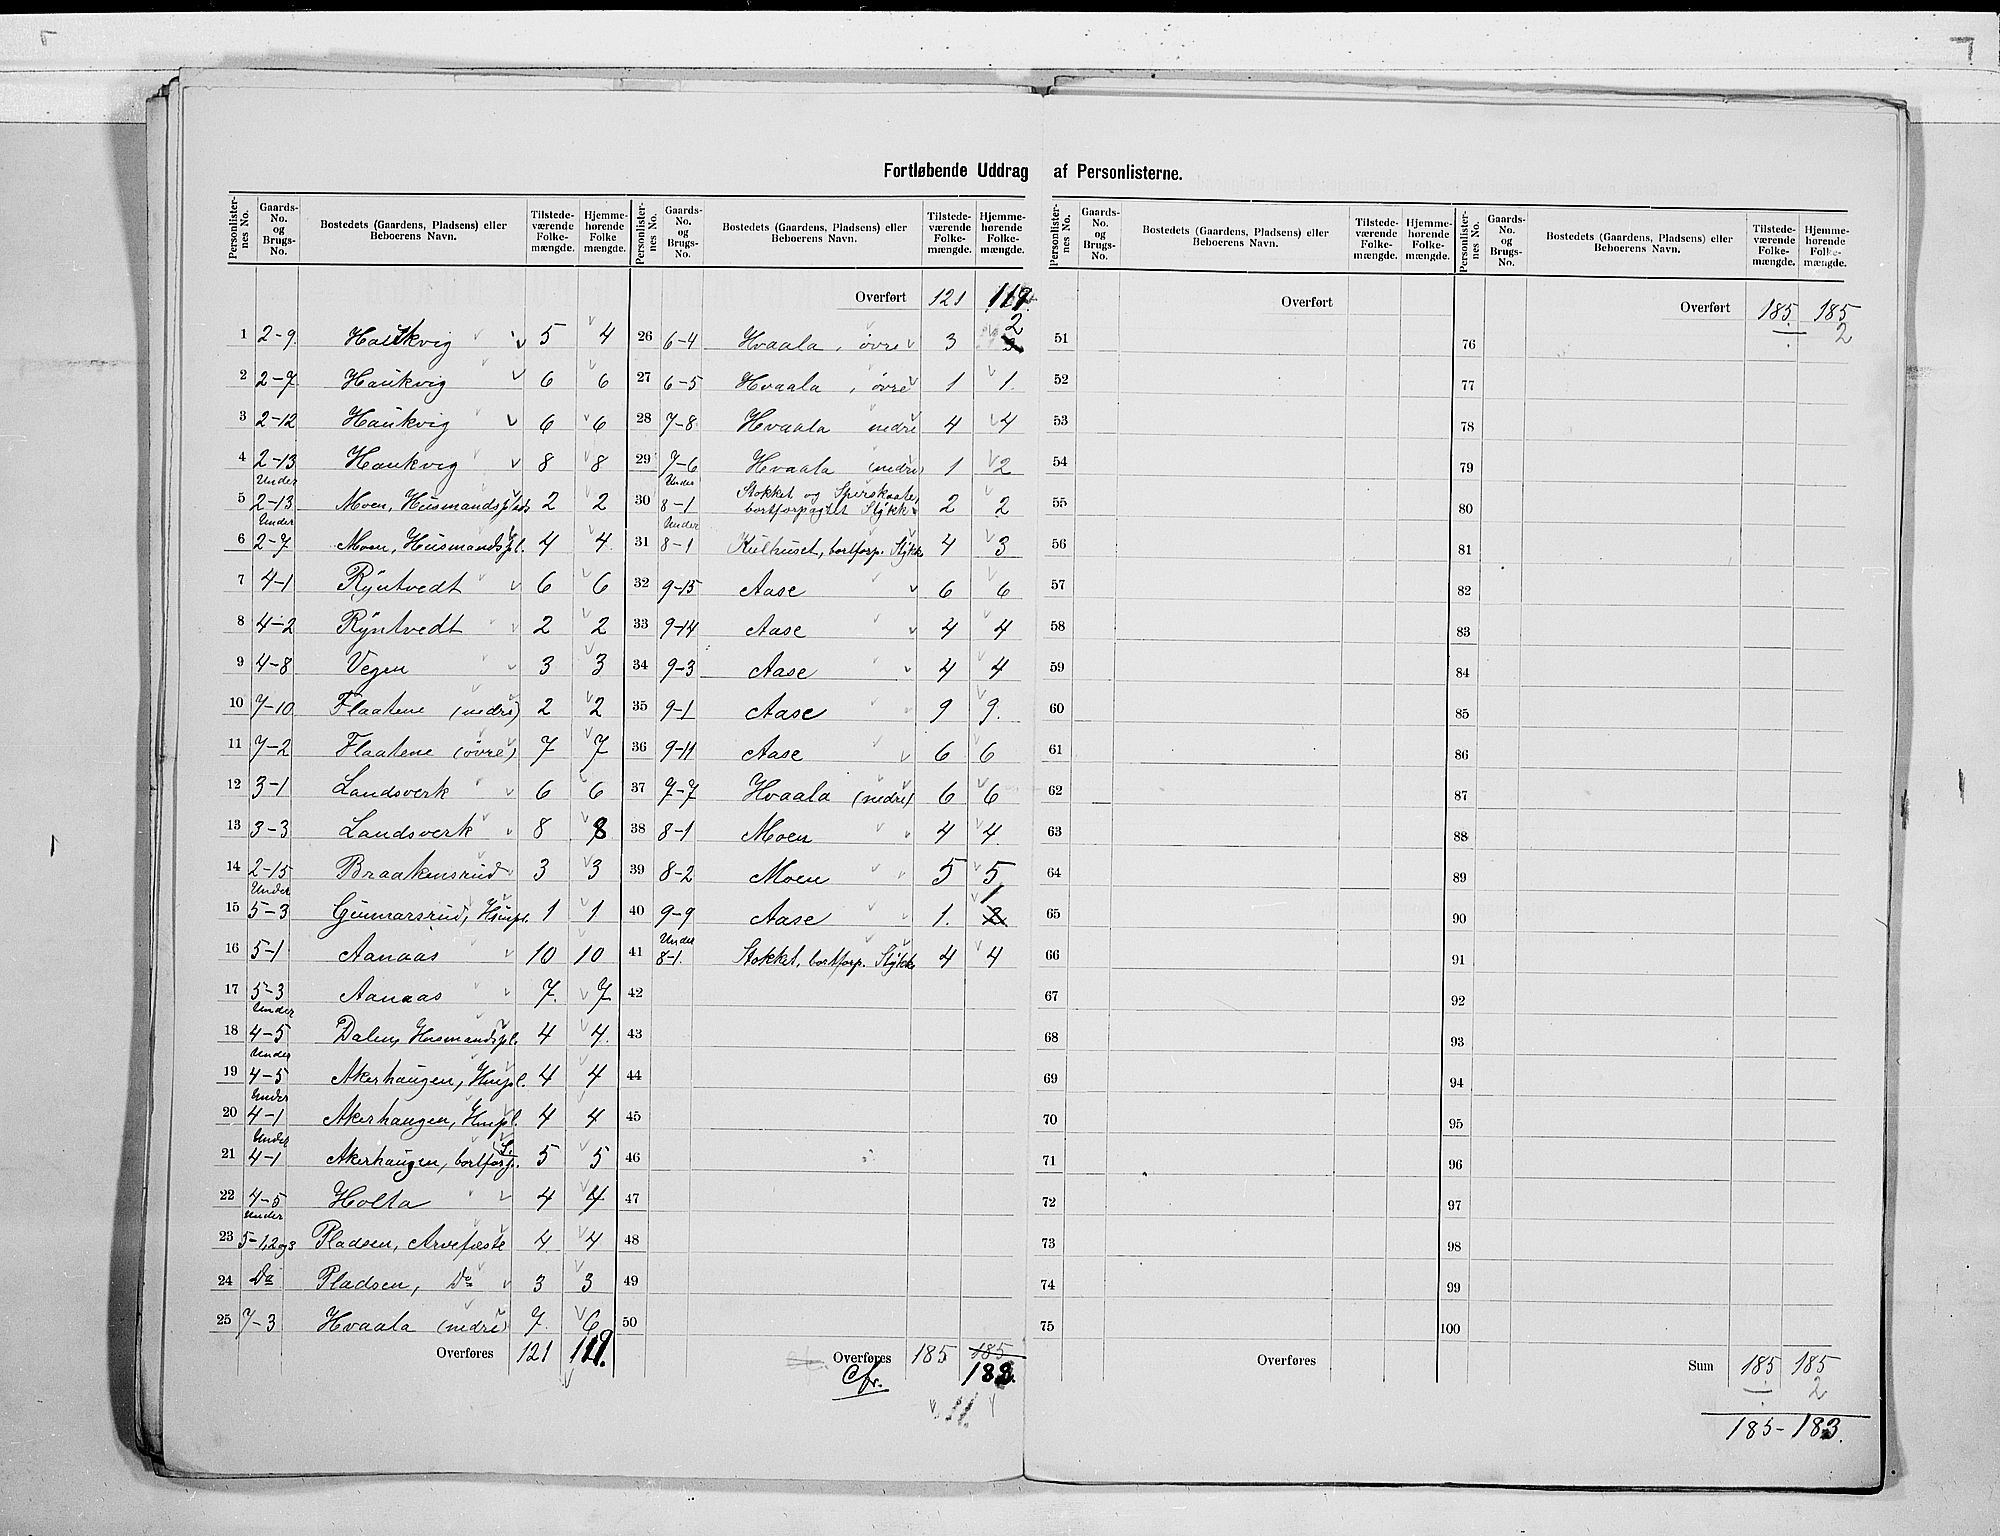 Fortløbende Uddrag af Personlisterne.
Personlisternes No. | Gaards-No. og Brugs-No. | Bostedets (Gaardens, Pladsens) eller Beboerens Navn. | Tilstedeværende Folkemængde. | Hjemmehørende Folkemængde.
1 2-9 Haukvig 5 4
2 2-7 Haukvig 6 6
3 2-12 Haukvig 6 6
4 2-13 Haukvig 8 8
5 Under 2-13 Moen, Husmandsplads 2 2
6 Under 2-7 Moen, Husmandspl. 4 4
7 4-1 Ryntvedt 6 6
8 4-2 Ryntvedt 2 2
9 4-8 Vegen 3 3
10 7-10 Flaatene (nedre) 2 2
11 7-2 Flaatene (øvre) 7 7
12 3-1 Landsverk 6 6
13 3-3 Landsverk 8 8
14 2-15 Braakensrud 3 3
15 Under 5-3 Gunnarsrud, Hmpl. 1 1
16 5-1 Aanaas 10 10
17 5-3 Aanaas 7 7
18 Under 4-5 Dalen, Husmandspl. 4 4
19 Under 4-5 Akerhaugen, Hmpl. 4 4
20 Under 4-1 Akerhaugen, Hmpl. 4 4
21 Under 4-1 Akerhaugen, bortforp. S. 5 5
22 4-5 Holta 4 4
23 Under 5-1,2og3 Pladsen, Arvefæste 4 4
24 Do Pladsen, Do 3 3
25 7-3 Hvaala (nedre) 7 6
Overføres 121 119.
Overført 121 119.
26 6-4 Hvaala, øvre 3 3 2
27 6-5 Hvaala, øvre 1 1.
28 7-8 Hvaala nedre 4 4
29 7-6 Hvaala (nedre) 1 2
30 Under 8-1 Stokket og Sperskaate, bortforpagtet Stykke 2 2
31 Under 8-1 Kulhuset, bortforp. Stykk 4 3
32 9-15 Aase 6 6
33 9-14 Aase 4 4
34 9-3 Aase 4 4
35 9-1 Aase 9 9.
36 9-11 Aase 6 6
37 7-7 Hvaala (nedre) 6 6
38 8-1 Moen 4 4.
39 8-2 Moen 5 5
40 9-9 Aase 1. 2 1
41 Under 8-1. Stokket, bortforp. Stykke 4 4
42
43
44
45
46
47
48
49
50
Overføres 185 185
Cfr. 183.
11.
Personlisternes No. | Gaards-No. og Brugs-No. | Bostedets (Gaardens, Pladsens) eller Beboerens Navn. | Tilstedeværende Folkemængde. | Hjemmehørende Folkemængde.
Overført
51
52
53
54
55
56
57
58
59
60
61
62
63
64
65
66
67
68
69
70
71
72
73
74
75
Overføres
Overført 185 185
2
76
77
78
79
80
81
82
83
84
85
86
87
88
89
90
91
92
93
94
95
96
97
98
99
100
Sum 185 185
2
185-183.